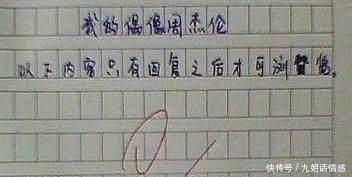 我的偶像周杰伦
以下内容只有回复之后才可浏覽。
快传号 / 九姐话情感